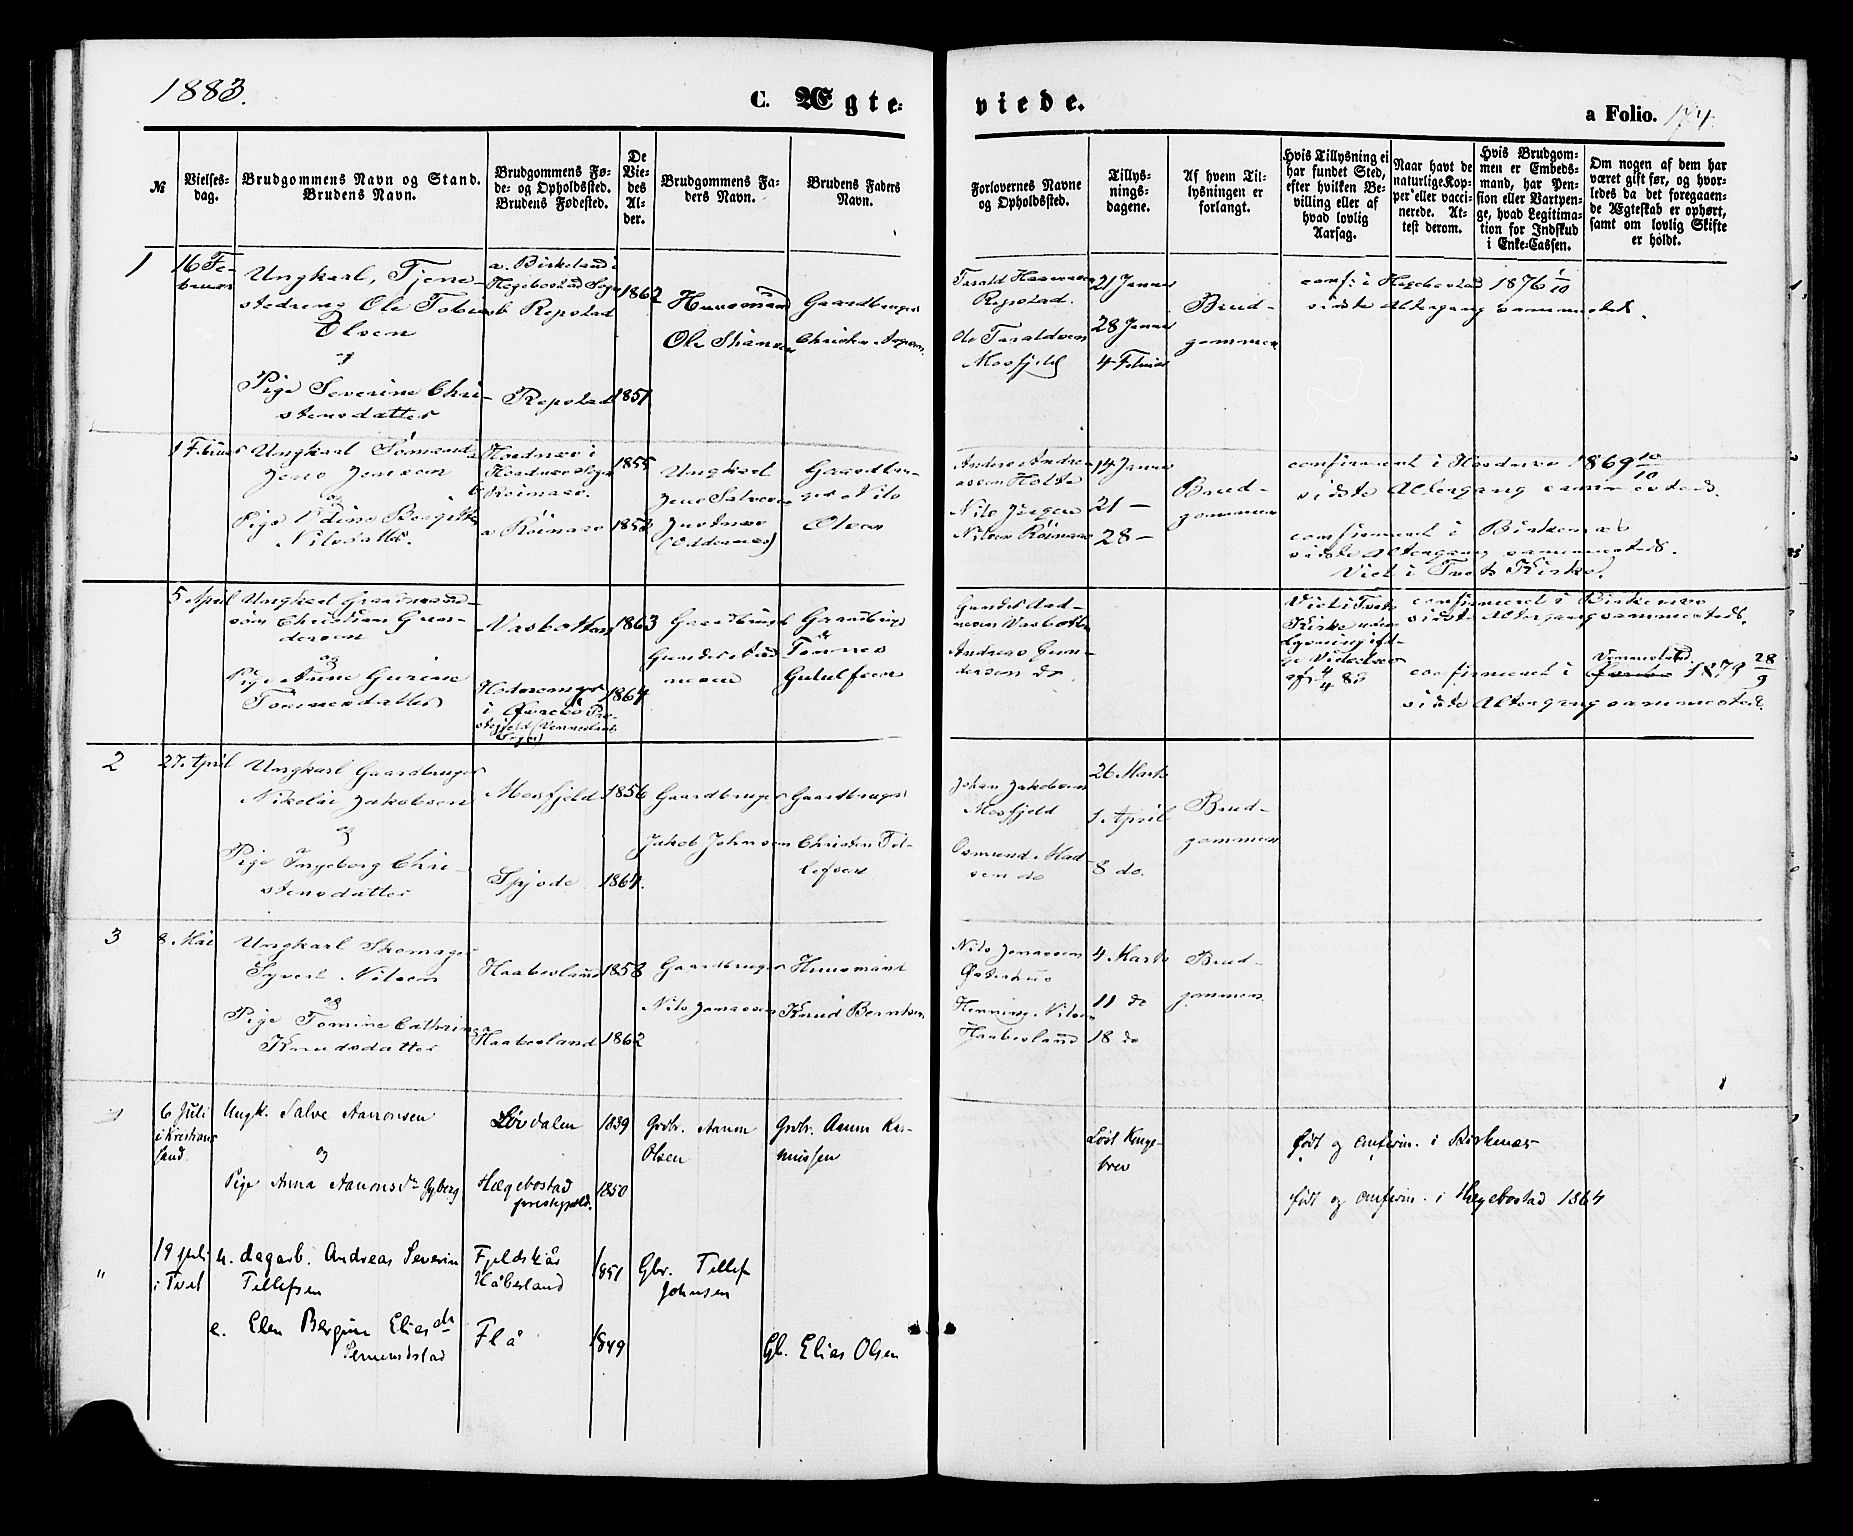 1883.
C. Ægte-
viede.
a Folio. 174.
№
Vielses-
dag.
Brudgommens Navn og Stand.
Brudens Navn.
Brudgommens Fø-
de- og Opholdssted.
Brudens Fødested.
De
Vie-
des
Al-
der.
Brudgommens Fa-
ders Navn.
Brudens Faders
Navn.
Forlovernes Navne
og Opholdssted.
Tillys-
nings-
dagene.
Af hvem Til-
lysningen er
forlangt.
Hvis Tillysning ei
har fundet Sted,
efter hvilken Be-
villing eller af
hvad lovlig
Aarsag.
Naar havt de
naturlige Kop-
per eller vacci-
nerede. At-
test derom.
Hvis Brudgom-
men er Embeds-
mand, har Pen-
sion eller Vartpen-
ge, hvad Legitima-
tion for Indskud
i Enke-Cassen.
Om nogen af dem har
været gift før, og hvor-
ledes da det foregaaen-
de Ægteskab er ophørt,
samt om lovlig Skifte
er holdt.
1
16 Fe-
bruar
Ungkarl, Tjene-
stedreng Ole Tobias
Olsen
og
Pige Severine Chri-
stensdatter
a. Birkeland i
Hegebostad Sogn
b Repstad
Repstad
1862
1851
Huusmand
Ole
Gaardbruger
Christen
Tarald
Repstad.
do Taraldsen
Mosfjeld
21 Januar
28 Januar
4 Februar
Brud-
gommen
conf: i Hegebostad 1876 1/10
sidste Altergang sammesteds.
1 Februar
Ungkarl
Jens Jensen
og
Pige
Nilsdatter
i
1855
1853
Ungkarl
Jens
(Oddernes)
Gaardbru-
ger Nils
Olsen
Anders Andre-
assen Holte
Nils Jørgen
Nilsen
14 Januar
21 —
28 —
Brud-
gommen
confirmeret i 1869 10/10
sidste Altergang sammesteds.
confirmeret i Birkenæs
sidste Altergang sammesteds.
Viet i Tvets Kirke.
5 April
Ungkarl Gaardmands-
søn Christian Gun-
dersen
og
Pige Anne Gurine
Tønnesdatter
Vasbotten
i Øvrebø Pre-
stegjeld (Vennesland
Sogn)
1863
1864
Gaardbruger
Gunder Aad-
nesen
Gaardbruger
Tønnes
Gutulfsen
Gunder Aad-
nesen Vasbotten
Andreas Gun-
dersen do
Viet i Tvets
Kirke uden
Lysning ifl-
ge Vidnesb
af 4/4 83
confirmeret i Birkenæs
sidste Altergang sammesteds.
confirmeret i Vennesland 1879 28/9
sidste Altergang sammesteds.
2
27. April
Ungkarl Gaardbruger
Nikolai Jakobsen
og
Pige Ingeborg Chri-
stensdatter
Mosfjeld
1856
1864.
Gaardbruger
Jakob Johnsen
Gaardbruger
Christen Til-
lefsen
Johan Jakobsen
Mosfjeld
Osmund Mad-
sen do
26 Marts
1 April
8 do.
Brud-
gommen
3
8. Mai
Ungkarl Skomager
Syvert Nilsen
og
Pige Tomine Cathrine
Knudsdatter
Haabesland
Haabesland
1858
1862
Gaardbruger
Nils Jonassen
Huusmand
Knud Berntsen
Nils Jonassen
Østerhus
Henning Nilsen
Haabesland
4 Marts
11 do
18 do
Brud-
gommen.
6 Juli
i Kristian-
sand.
Ungk. Salve Aanonsen
og
Pige Anna Aanonsdr Gyberg
Lövdalen
Hægebostad
prestegjeld.
1839
1850
Grdbr. Aanon
Olsen
Grdbr. Aanon Ras-
mussen
Löst Konge-
brev
født og confirm. i Birkenæs
født og confirm. i Hægebostad 1864
"
19 Juli
i Tvet
u. dagarb. Andreas Severin
Tellefsen
e. Elen Bergine Eliasdr
Fjeldskår
Håbesland
Flå
1851
1849
Gbr. Tellef
Johnsen
Gb. Elias Olsen